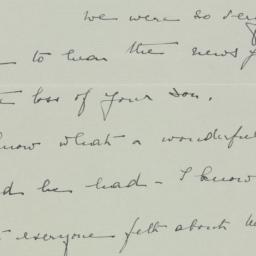 we were so
to hear the news
loss of your son.
know what a wonderful
he had - I know
everyone felt about